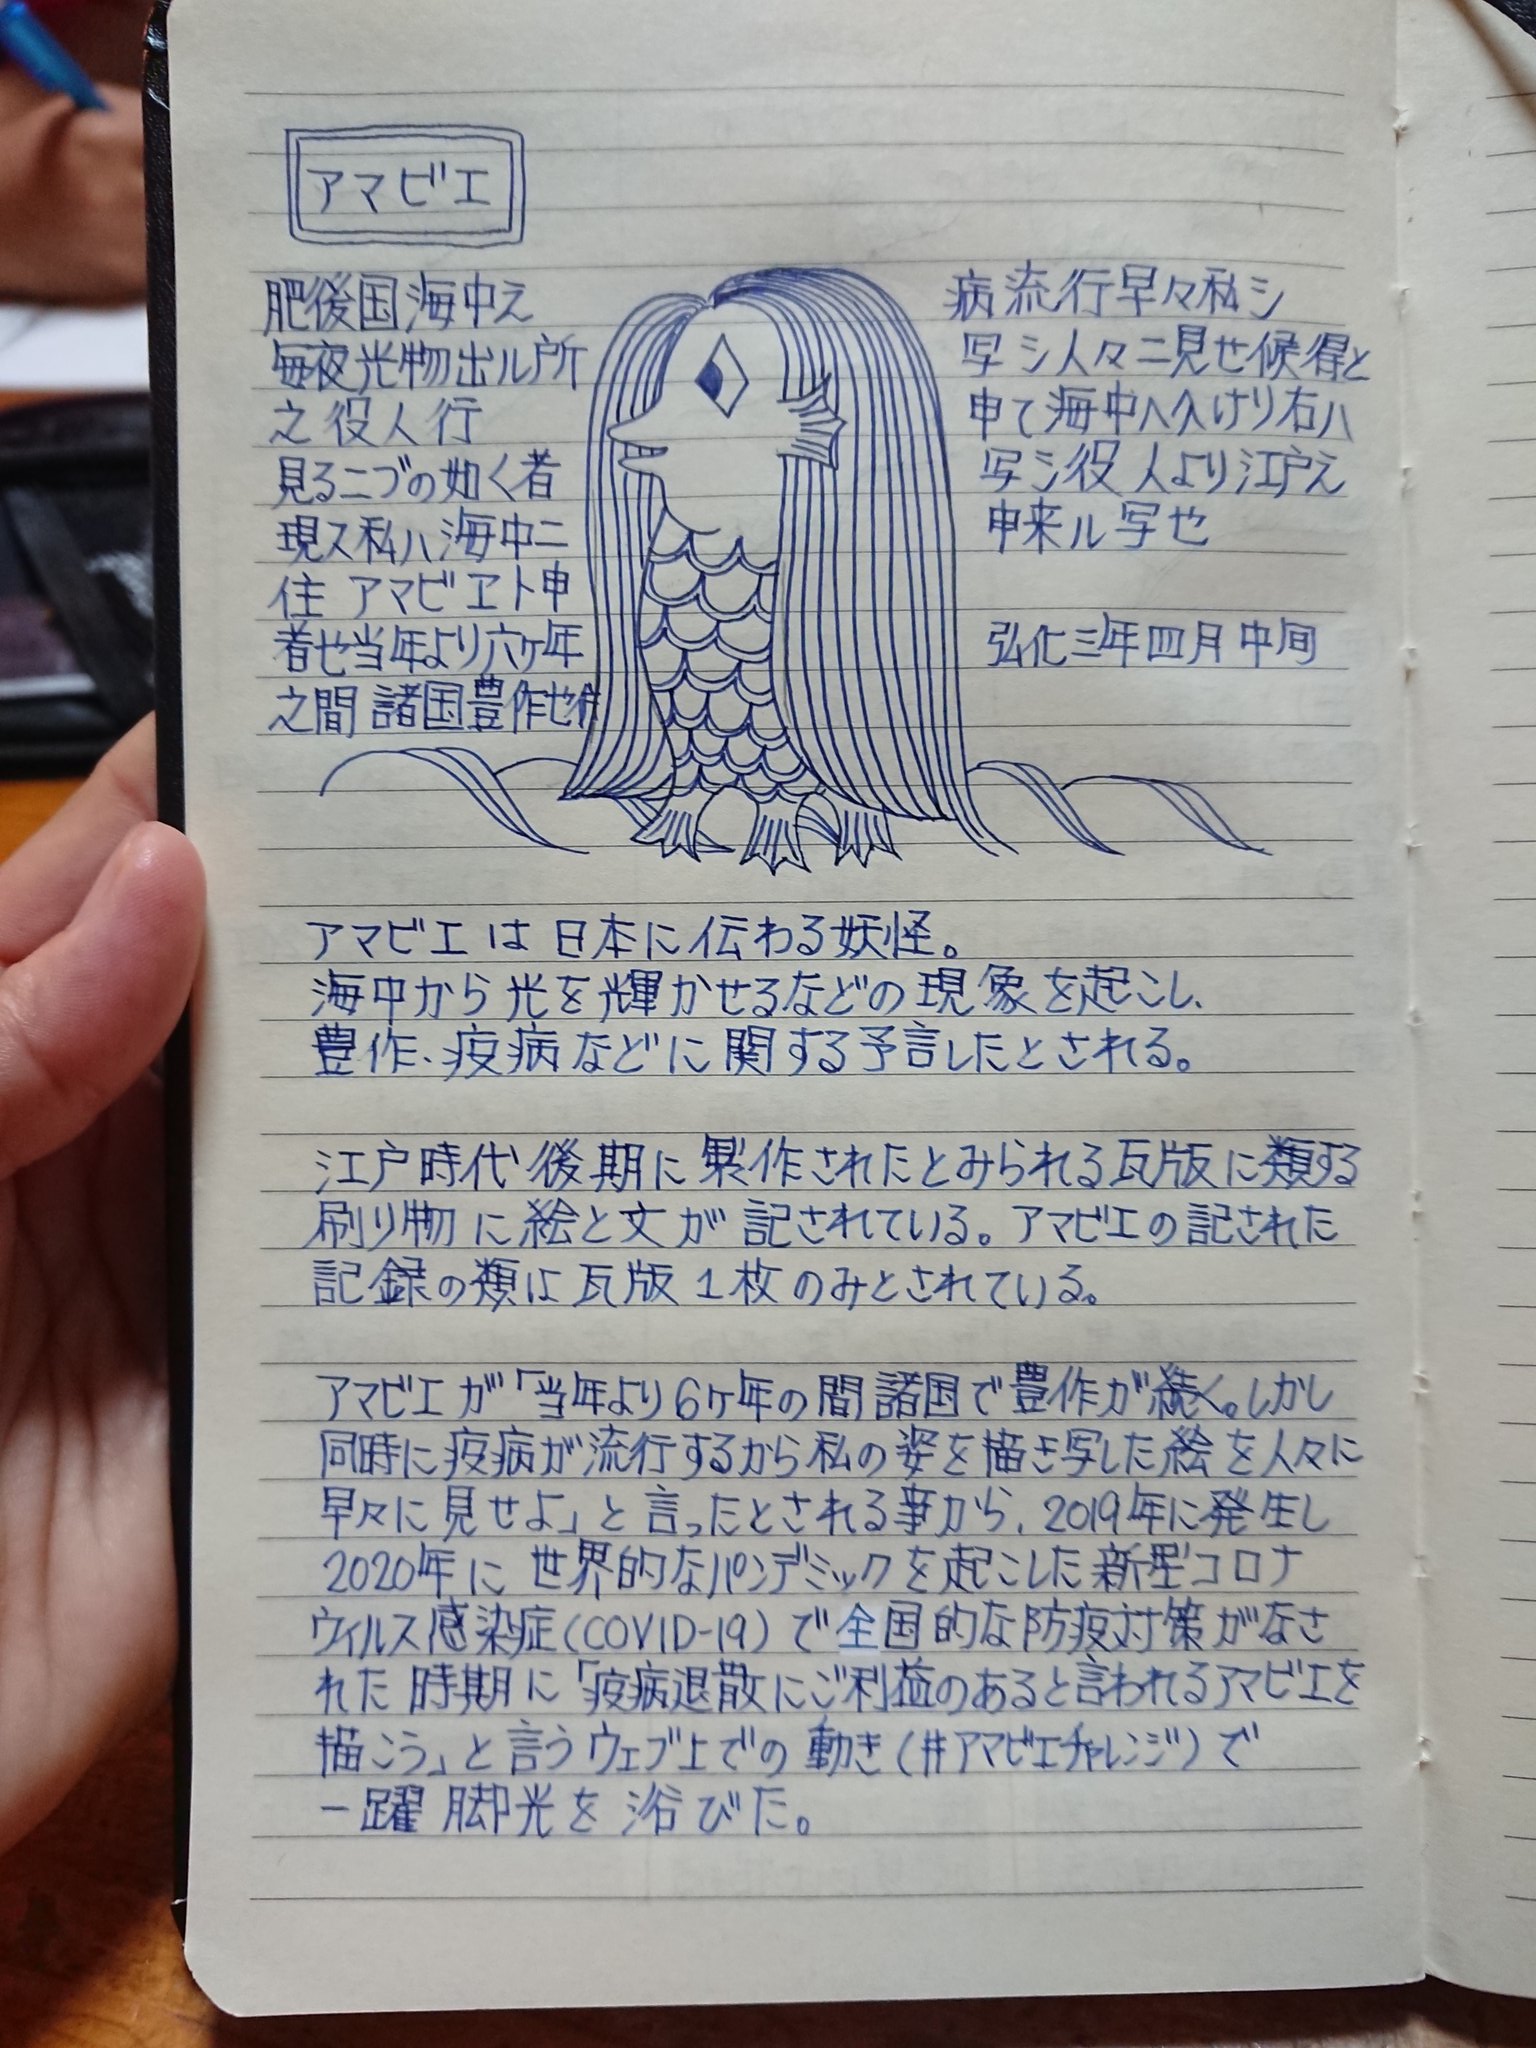 アマビエ
肥後国海中え
毎夜光物出ル所
之役人行
見るニづの如く者
現ス私ハ海中ニ
住アマビヱト申
者也当年より六ケ年
之間諸国豊作也併
病流行早々私シ
写シ人々ニ見せ候得と
申て海中へ入けり右ハ
写シ役人より江戸え
申来ル写也
弘化三年四月中旬
アマビエは日本に伝わる妖怪。
海中から光を輝かせるなどの現象を起こし、
豊作、疫病などに関する予言したとされる。
江戸時代後期に製作されたとみられる瓦版に類する
刷り物に絵と文が記されている。アマビエの記された
記録の類は瓦版1枚のみとされている。
アマビエが「当年より6ヶ年の間諸国で豊作が続く。しかし
同時に疫病が流行するから私の姿を描き写した絵を人々に
早々に見せよ」と言ったとされる事から、2019年に発生し
2020年に世界的なパンデミックを起こした新型コロナ
ウィルス感染症(COVID-19)で全国的な防疫対策がなさ
れた時期に「疫病退散にご利益のあると言われるアマビエを
描こう」と言うウェブ上での動き(#アマビエチャレンジ)で
一躍脚光を浴びた。